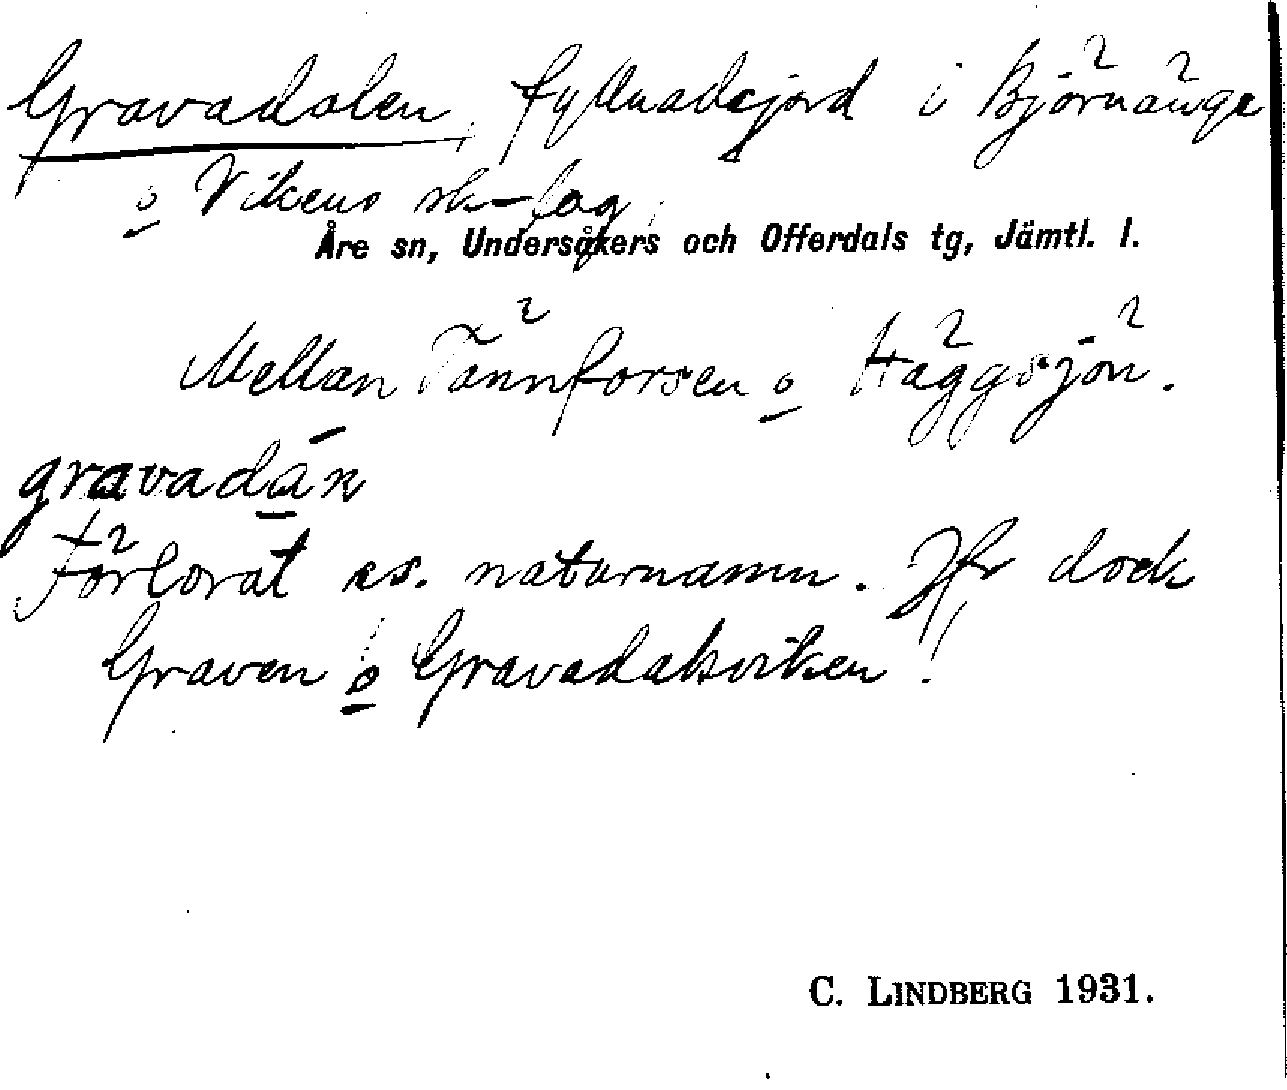 Gravadalen, fyllnadsjord i Björnänge
o Vikens sk-lag,
Åre sn, Undersåkers och Offerdals tg, Jämtl. l.
Mellan Tännforsen o Häggsjön.
gravadán
Förlorat ss. naturnamn. Jfr dock
Graven o Gravadalsviken!
C. LINDBERG 1931.